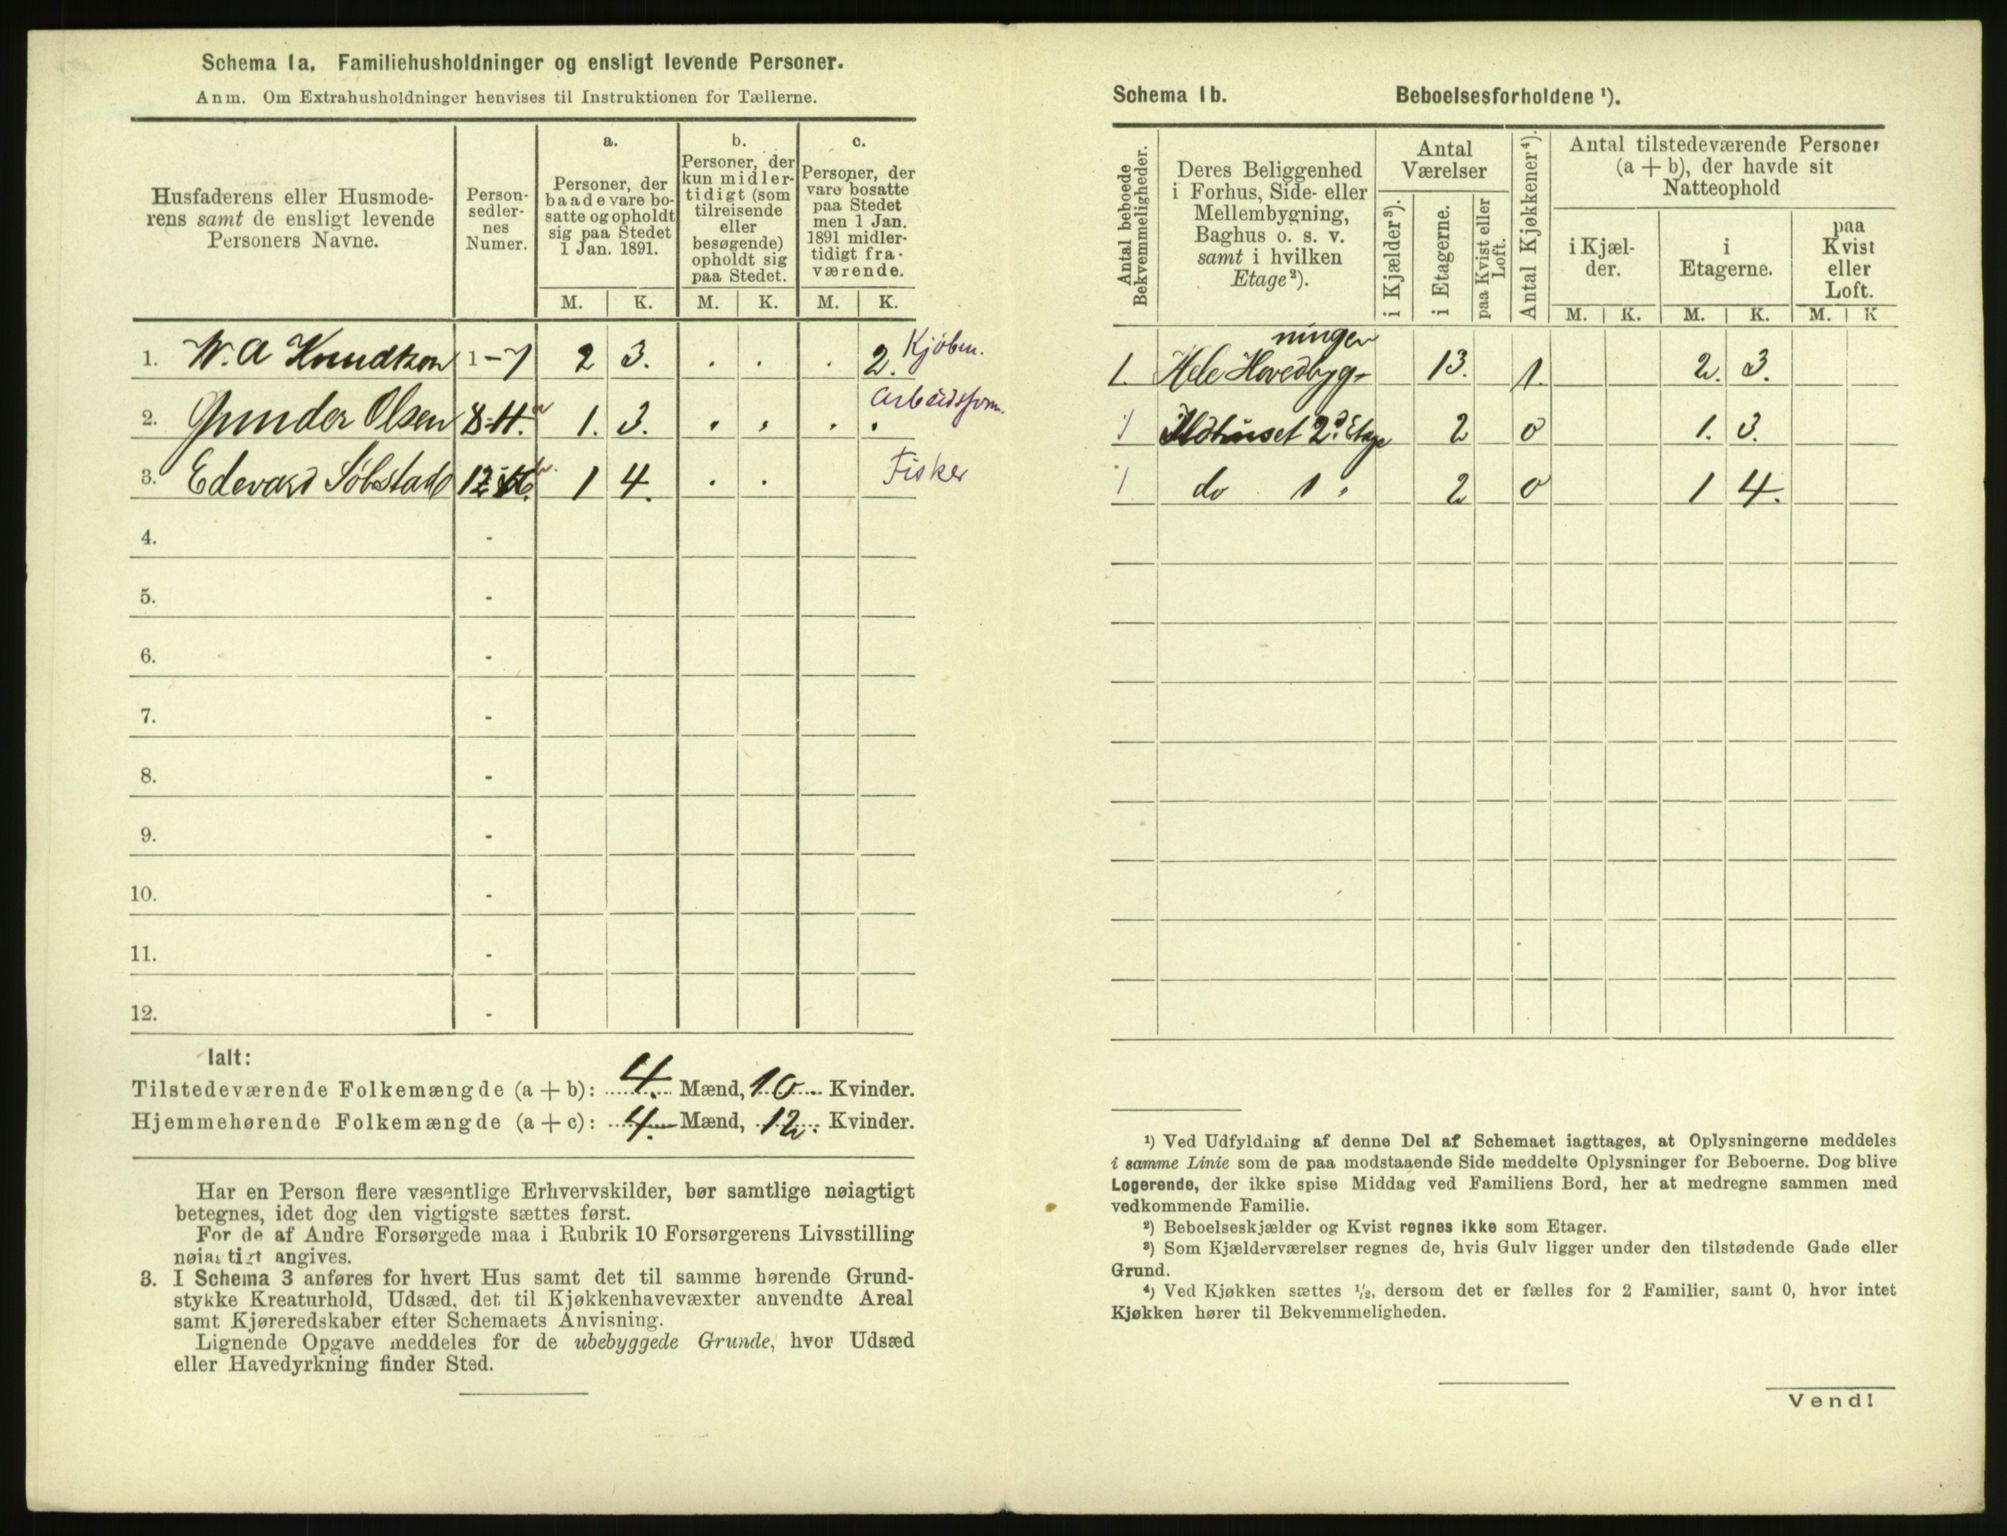 Schema 1a. Familiehusholdninger og ensligt levende Personer.
Anm. Om Extrahusholdninger henvises til Instruktionen for Tællerne.
Husfaderens eller Husmode-
rens samt de ensligt levende
Personers Navne.
Person-
sedler-
nes
Numer.
a.
Personer, der
baade vare bo-
satte og opholdt
sig paa Stedet
1 Jan. 1891.
b.
Personer, der
kun midler-
tidigt (som
tilreisende
eller
besøgende)
opholdt sig
paa Stedet.
c.
Personer, der
vare bosatte
paa Stedet
men 1 Jan.
1891 midler-
tidigt fra-
værende.
M. K. M. K. M. K.
1. W. A Knudtzon 1-7 2 3. . . . 2. Kjøbm.
2. Gunder Olsen 8-11. 1. 3. . . . . Arbeidsform.
3. Edevard Sòbstad 12- 1 4. . . Fisker
4. -
5. -
6. -
7. -
8. -
9. -
10. -
11. -
12. -
Ialt:
Tilstedeværende Folkemængde (a + b): 4. Mænd, 10. Kvinder.
Hjemmehørende Folkemængde (a + c): 4. Mænd, 12. Kvinder.
Har en Person flere væsentlige Erhvervskilder, bør samtlige nøiagtigt
betegnes, idet dog den vigtigste sættes først.
For de af Andre Forsørgede maa i Rubrik 10 Forsørgerens Livsstilling
nøiagtigt angives.
3. I Schema 3 anføres for hvert Hus samt det til samme hørende Grund-
stykke Kreaturhold, Udsæd, det til Kjøkkenhavevæxter anvendte Areal
samt Kjøreredskaber efter Schemaets Anvisning.
Lignende Opgave meddeles for de ubebyggede Grunde, hvor Udsæd
eller Havedyrkning finder Sted.
Schema 1b. Beboelsesforholdene ¹).
Antal beboede
Bekvemmeligheder.
Deres Beliggenhed
i Forhus, Side- eller
Mellembygning,
Baghus o. s. v.
samt i hvilken
Etage²).
Antal
Værelser
i Kjælder³).
i Etagerne.
paa Kvist eller
Loft.
Antal Kjøkkener⁴).
Antal tilstedeværende Personer
(a + b), der havde sit
Natteophold
i Kjæl-
der.
i
Etagerne.
paa
Kvist
eller
Loft.
M. K. M. K. M. K
ningen
1. Hele Hovedbyg- 13. 1. 2. 3.
1 Ildhuset 2d. Etage 2 0 1. 3.
1 do 1 " 2 0 1 4.
¹) Ved Udfyldning af denne Del af Schemaet iagttages, at Oplysningerne meddeles
i samme Linie som de paa modstaaende Side meddelte Oplysninger for Beboerne. Dog blive
Logerende, der ikke spise Middag ved Familiens Bord, her at medregne sammen med
vedkommende Familie.
²) Beboelseskjælder og Kvist regnes ikke som Etager.
³) Som Kjælderværelser regnes de, hvis Gulv ligger under den tilstødende Gade eller
Grund.
⁴) Ved Kjøkken sættes ½, dersom det er fælles for 2 Familier, samt 0, hvor intet
Kjøkken hører til Bekvemmeligheden.
Vend!